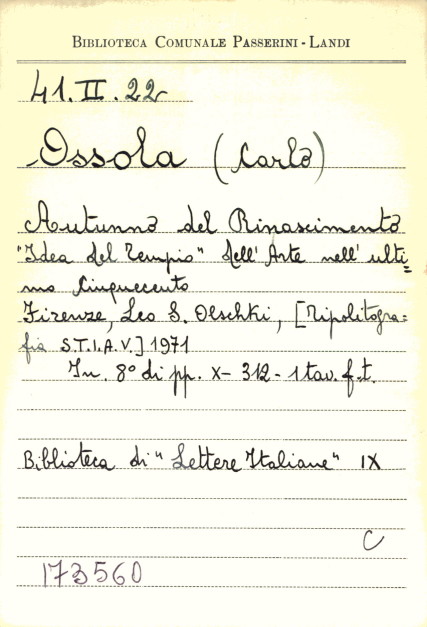 BIBLIOTECA COMUNALE PASSERINI - LANDI
41.II.22
Ossola (Carlo)
Autunno del Rinascimento
"Idea del Tempio" dell' Arte nell' ulti=
mo Cinquecento
Firenze, Leo S. Olschki, [Tipolitogra=
fia S.T.I.A.V.] 1971
In. 8° di pp. X- 312 - 1 tav. f.t.
Biblioteca di "Lettere Italiane" IX
C
173560